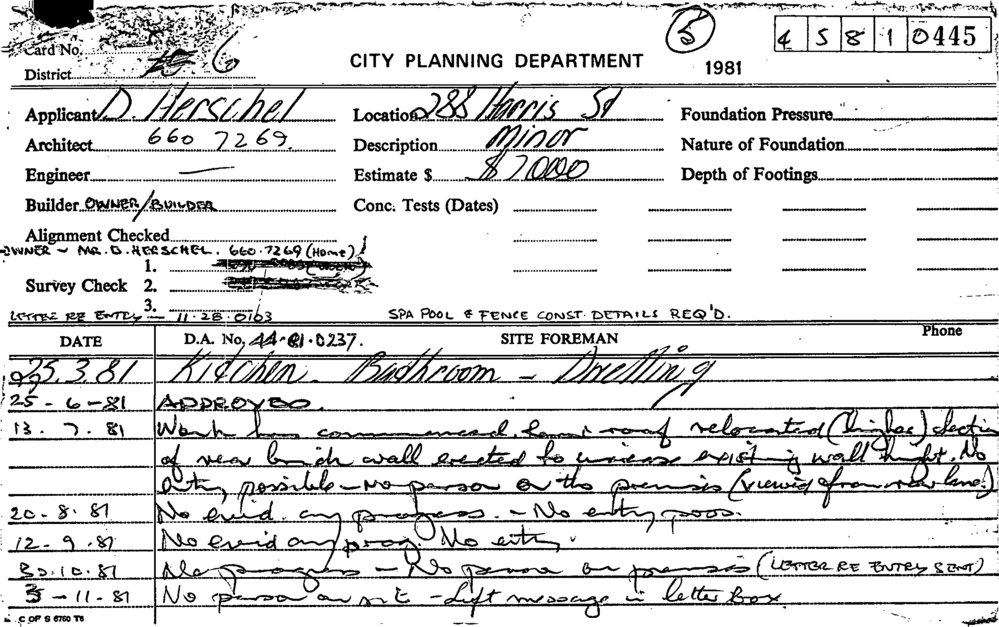 Card No.
5
4 5 8 1 0445
District 6
CITY PLANNING DEPARTMENT
1981
Applicant D. Herschel
Location 288 Harris St
Foundation Pressure
Architect 660 7269.
Description Minor
Nature of Foundation
Engineer —
Estimate $ $7000
Depth of Footings
Builder OWNER/BUILDER
Conc. Tests (Dates)
Alignment Checked
OWNER ~ MR. D. HERSCHEL. 660.7269 (Home)
1.
Survey Check 2.
3.
LETTER RE ENTRY — 11-28-0103
SPA POOL & FENCE CONST. DETAILS REQ'D.
DATE D.A. No. 44-81-0237. SITE FOREMAN Phone
25.3.81 Kitchen - Bathroom - Dwelling
25-6-81 APPROVED.
13.7.81 Work has commenced. roof relocated (higher) Section
of rear brick wall erected to increase existing wall height. No
entry possible - no person on the premises (viewed from rear lane)
20.8.81 No evid. any progress. - No entry poss.
12-9.81 No evid any prog. No entry.
30.10.81 No progress - No person on premises (LETTER RE ENTRY SENT)
3-11-81 No person on site - Left message in letter box
C OF S 6760 T6